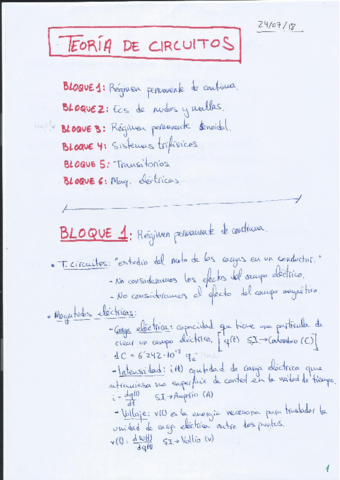 24/07/18
TEORÍA DE CIRCUITOS
BLOQUE 1: Régimen permanente de continua.
BLOQUE 2: Ecs de nudos y mallas.
BLOQUE 3: Régimen permanente senoidal.
BLOQUE 4: Sistemas trifásicos
BLOQUE 5: Transitorios
BLOQUE 6: Maq. eléctricas
BLOQUE 1: Régimen permanente de continua.
• T. circuitos: "estudio del mvto de las cargas en un conductor."
- No consideramos los efectos del campo eléctrico.
- No consideramos el efecto del campo magnético
• Magnitudes eléctricas:
- Carga eléctrica: capacidad que tiene una partícula de
crear un campo eléctrico. [q(t) SI→Coulombio (C)]
1C = 6'242·10 q
- Intensidad: i(t) cantidad de carga eléctrica que
atraviesa una superficie de control en la unidad de tiempo.
i = dq(t)/dt SI→Amperio (A)
- Voltaje: v(t) es la energía necesaria para trasladar la
unidad de carga eléctrica entre dos puntos.
v(t) = dW(t)/dq(t) SI→Voltio (V)
1